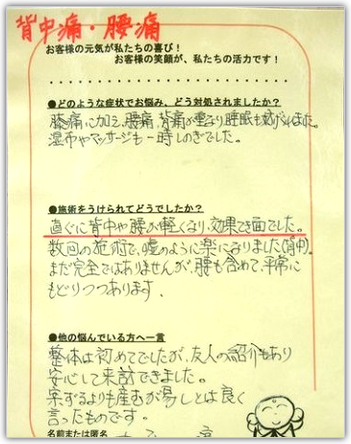 背中痛・腰痛
お客様の元気が私たちの喜び！
お客様の笑顔が、私たちの活力です！
●どのような症状でお悩み、どう対処されましたか？
膝痛に加え、腰痛、背痛が重なり、睡眠も妨げられました。
湿布やマッサージも一時しのぎでした。
●施術をうけられてどうでしたか？
直ぐに背中や腰が軽くなり、効果てき面でした。
数回の施術で、嘘のように楽になりました(背中)。
まだ完全ではありませんが、腰も含めて、平常に
もどりつつあります。
●他の悩んでいる方へ一言
整体は初めてでしたが、友人の紹介もあり
安心して来訪できました。
案ずるよりも産むが易しとは良く
言ったものです。
名前または匿名